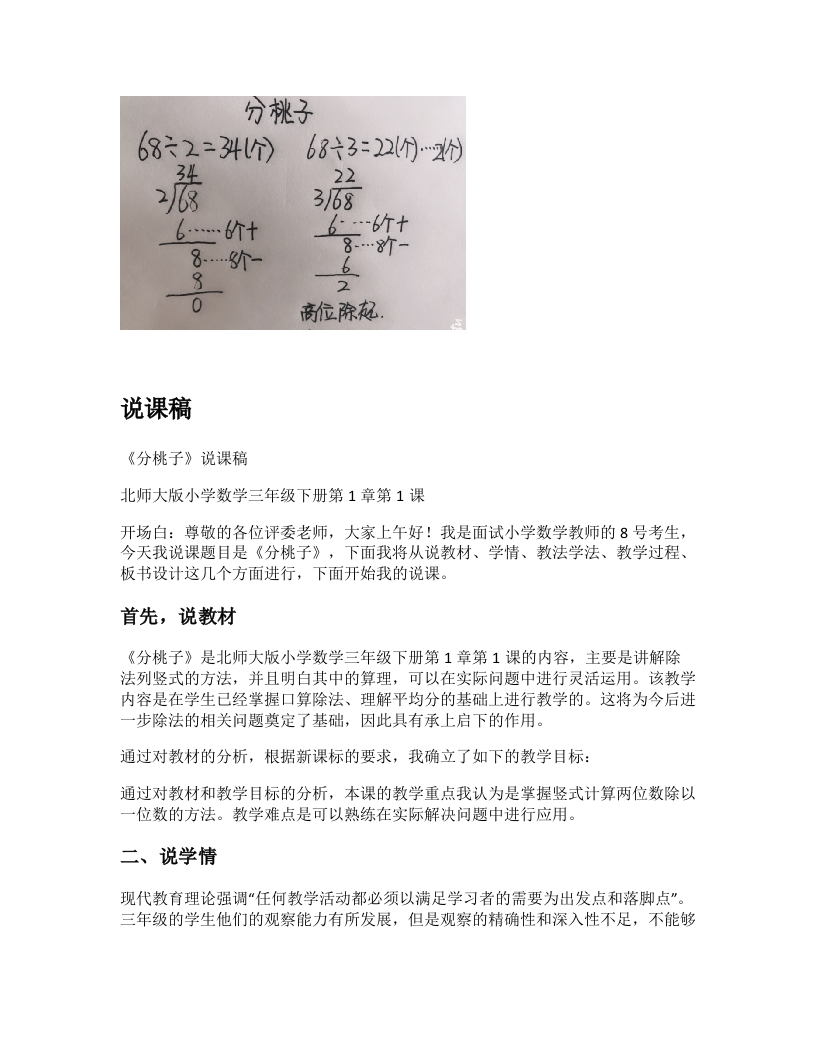 分桃子
68÷2=34(个) 68÷3=22(个)……2(个)
34 22
2 68 3 68
6……6个十 6……6个十
8……8个一 8……8个一
8 6
0 2
高位除起.
说课稿
《分桃子》说课稿
北师大版小学数学三年级下册第 1 章第 1 课
开场白：尊敬的各位评委老师，大家上午好！我是面试小学数学教师的 8 号考生，
今天我说课题目是《分桃子》，下面我将从说教材、学情、教法学法、教学过程、
板书设计这几个方面进行，下面开始我的说课。
首先，说教材
《分桃子》是北师大版小学数学三年级下册第 1 章第 1 课的内容，主要是讲解除
法列竖式的方法，并且明白其中的算理，可以在实际问题中进行灵活运用。该教学
内容是在学生已经掌握口算除法、理解平均分的基础上进行教学的。这将为今后进
一步除法的相关问题奠定了基础，因此具有承上启下的作用。
通过对教材的分析，根据新课标的要求，我确立了如下的教学目标：
通过对教材和教学目标的分析，本课的教学重点我认为是掌握竖式计算两位数除以
一位数的方法。教学难点是可以熟练在实际解决问题中进行应用。
二、说学情
现代教育理论强调“任何教学活动都必须以满足学习者的需要为出发点和落脚点”。
三年级的学生他们的观察能力有所发展，但是观察的精确性和深入性不足，不能够